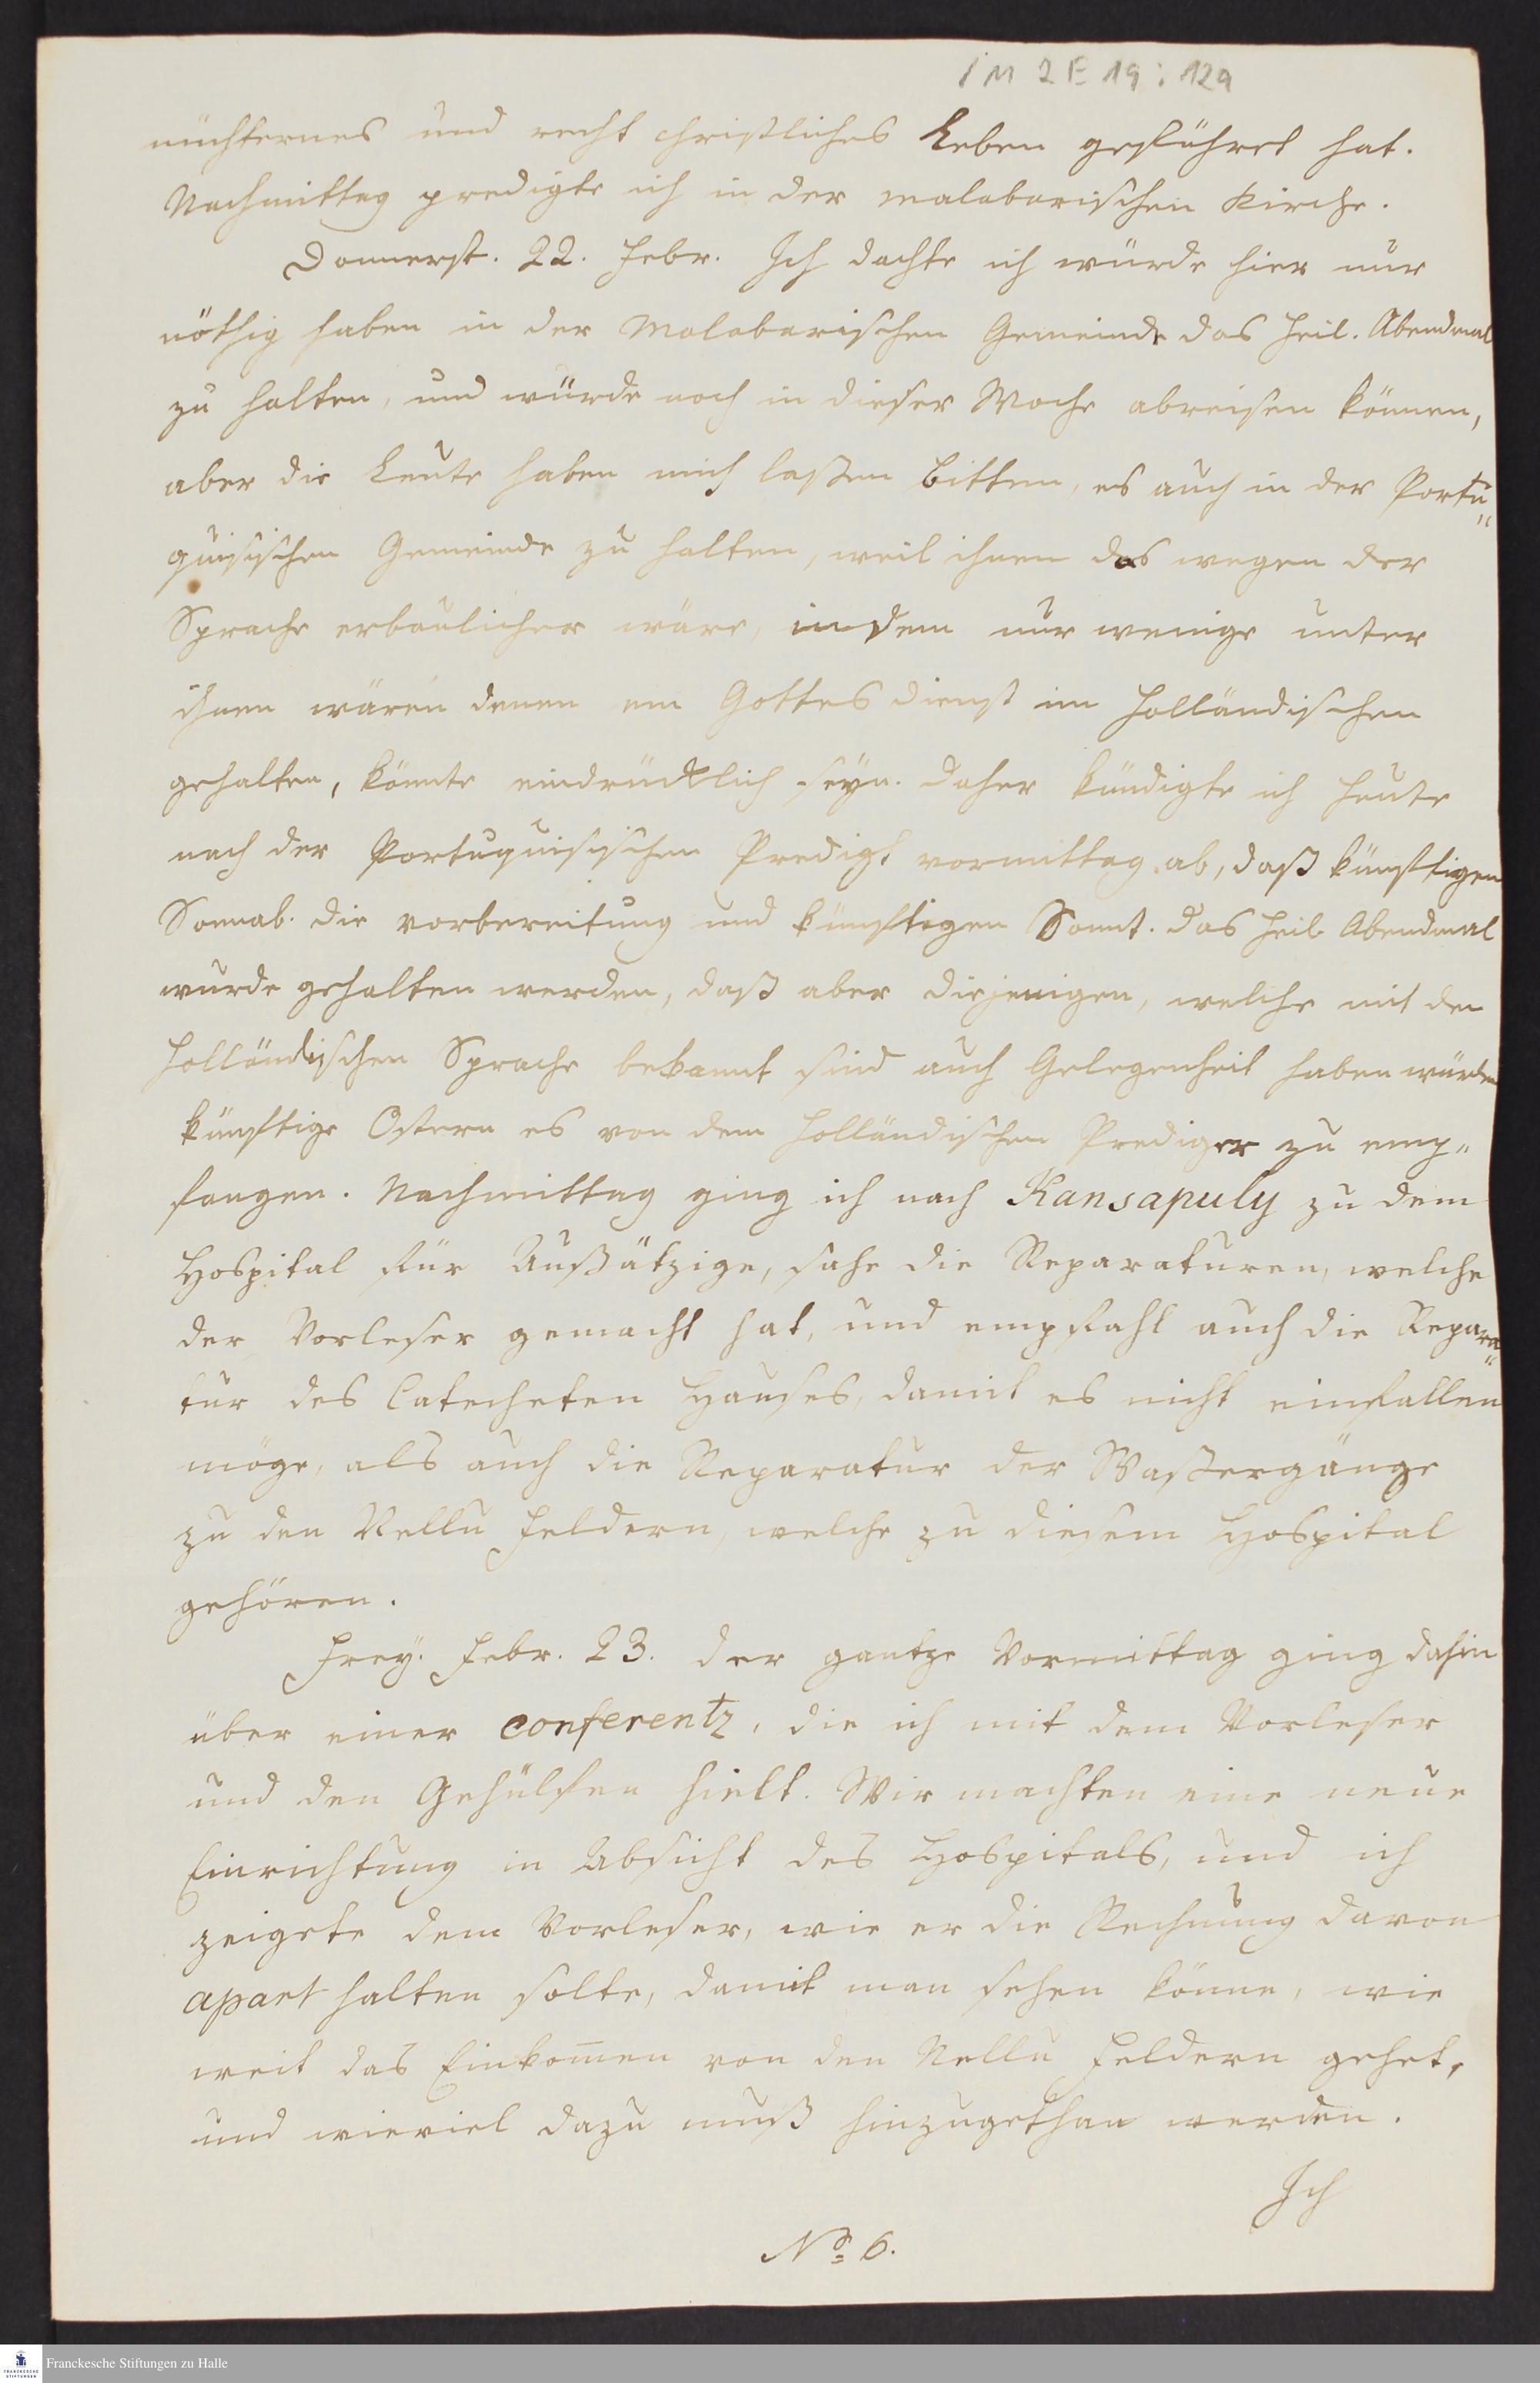 1M 2 E 19 : 129
nüchternes und recht christliches Leben geführet hat.
Nachmittag predigte ich in der malabarischen Kirche.
Donnerst. 22. Febr. Ich dachte ich würde hier nur
nöthig haben in der Malabarischen Gemeinde das heil. Abendmal
zu halten, und würde noch in dieser Woche abreisen können,
aber die Leute haben mich laßen bitten, es auch in der Portu„
guisischen Gemeinde zu halten, weil ihnen das wegen der
Sprache erbaulicher wäre, indem nur wenige unter
ihnen wären denen ein Gottesdienst im Holländischen
gehalten, könnte eindrücklich seyn. Daher kündigte ich heute
nach der Portuguisischen Predigt vormittag ab, daß künftigen
Sonnab. die vorbereitung und künftigen Sonnt. das heil. Abendmal
wurde gehalten werden, daß aber diejenigen, welche mit der
Holländischen Sprache bekannt sind auch Gelegenheit haben würden
künftige Ostern es von dem Holländischen Prediger zu emp„
fangen. Nachmittag ging ich nach Kansapuly zu dem
Hospital für Außätzige, sahe die Reparaturen, welche
der Vorleser gemacht hat, und empfahl auch die Repara„
tur des Catecheten Hauses, damit es nicht einfallen
möge, als auch die Reparatur der Waßergänge
zu den Nellu Feldern, welche zu diesem Hospital
gehören.
Frey. Febr. 23. der gantze Vormittag ging dahin
über einer conferentz, die ich mit dem Vorleser
und den Gehülfen hielt. Wir machten eine neue
Einrichtung in Absicht des Hospitals, und ich
zeigete dem Vorleser, wie er die Rechnung davon
apart halten solte, damit man sehen könne, wie
weit das Einkom̄en von den Nellu Feldern gehet,
und wieviel dazu muß hinzugethan werden.
Ich
No. 6.
Franckesche Stiftungen zu Halle